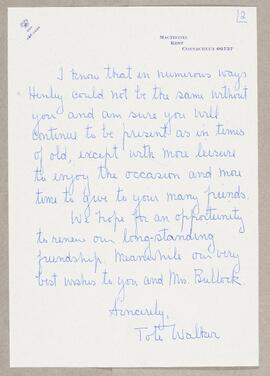 2
Macedonia
Kent
Connecticut 06757
I know that in numerous ways
Henley could not be the same without
you and am sure you will
continue to be present as in times
of old, except with more leisure
to enjoy the occasion and more
time to give to your many friends.
We hope for an opportunity
to renew our long-standing
friendship. Meanwhile our very
best wishes to you and Mrs. Bullock.
Sincerely,
Tote Walker